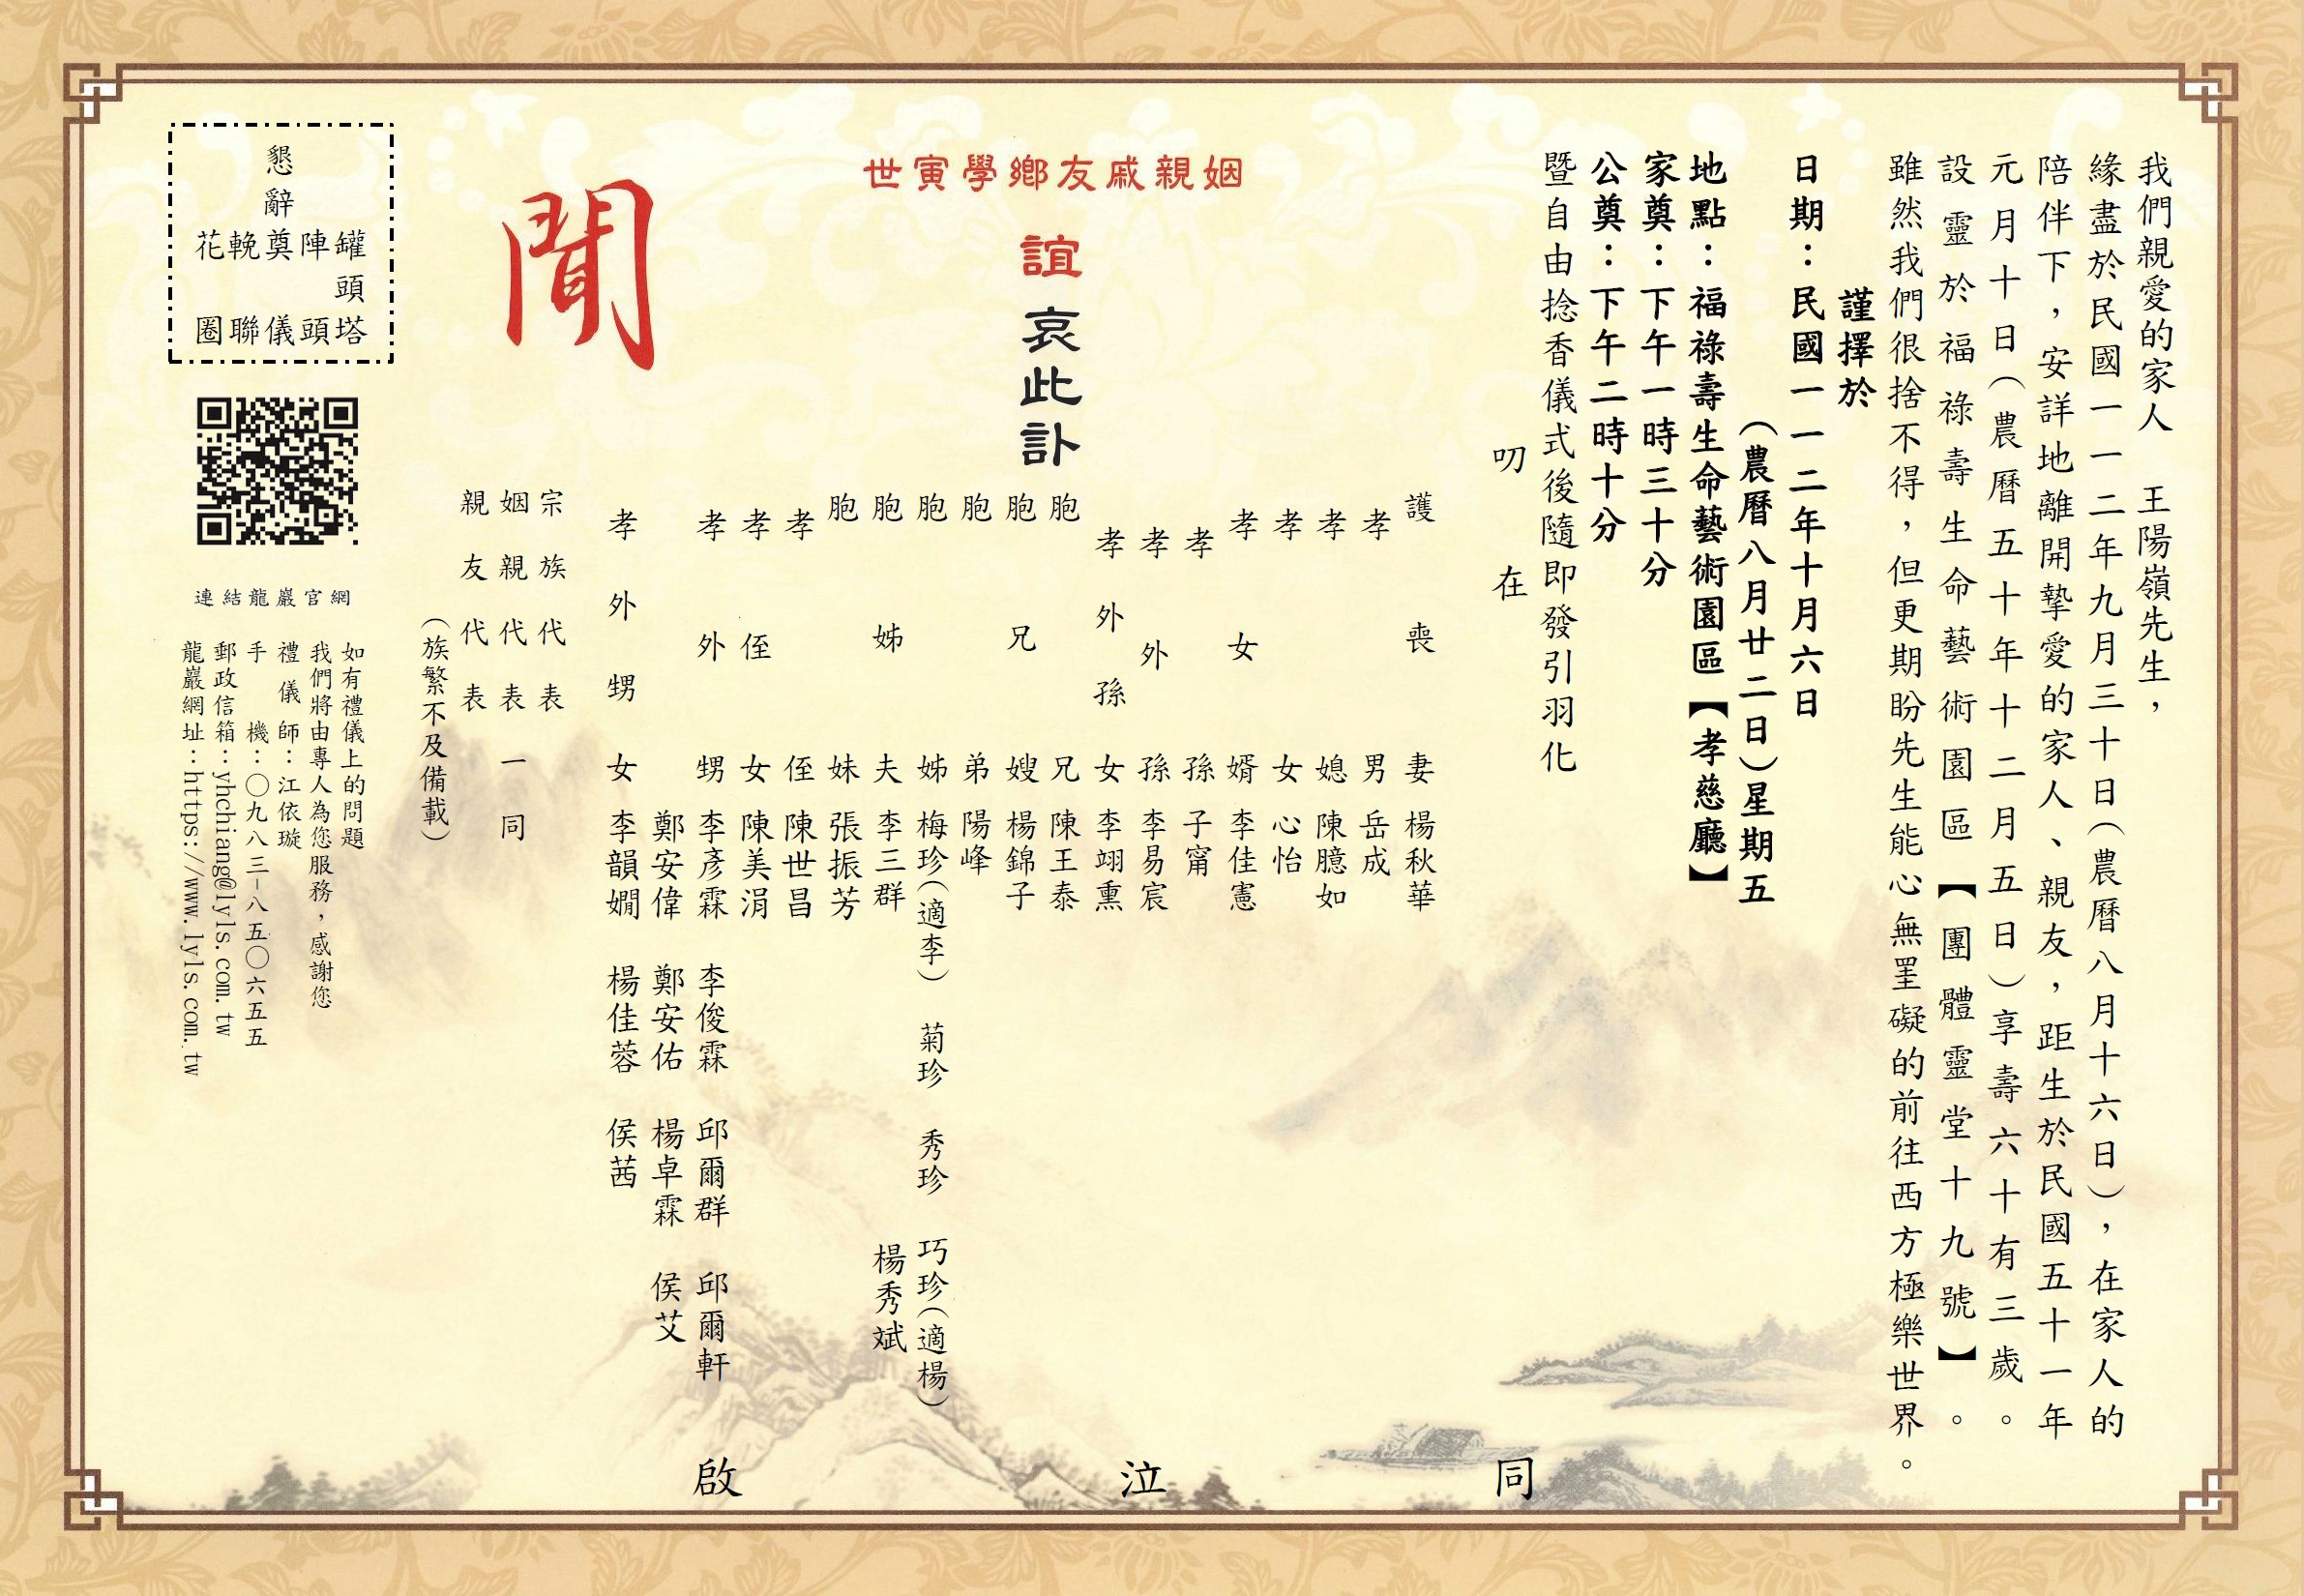 我們親愛的家人　王陽嶺先生，
緣盡於民國一一二年九月三十日（農曆八月十六日），在家人的
陪伴下，安詳地離開摯愛的家人、親友，距生於民國五十一年
元月十日（農曆五十年十二月五日）享壽六十有三歲。
設靈於福祿壽生命藝術園區【團體靈堂十九號】。
雖然我們很捨不得，但更期盼先生能心無罣礙的前往西方極樂世界。
謹擇於
日期：民國一一二年十月六日
（農曆八月廿二日）星期五
地點：福祿壽生命藝術園區【孝慈廳】
家奠：下午一時三十分
公奠：下午二時十分
暨自由捻香儀式後隨即發引羽化
叨在
姻親戚友鄉學寅世
誼哀此訃
聞
護喪妻 楊秋華
孝男 岳成
孝媳 陳臆如
孝女 心怡
孝女婿 李佳憲
孝孫 子甯
孝外孫 李易宸
孝外孫女 李翊熏
胞兄 陳王泰
胞兄嫂 楊錦子
胞弟 陽峰
胞姊 梅珍（適李） 菊珍 秀珍 巧珍（適楊）
胞姊夫 李三群 楊秀斌
胞妹 張振芳
孝侄 陳世昌
孝侄女 陳美涓
孝外甥 李彥霖 李俊霖 邱爾群 邱爾軒
鄭安偉 鄭安佑 楊卓霖 侯艾
孝外甥女 李韻嫺 楊佳蓉 侯茜
同泣啟
宗族代表
姻親代表一同
親友代表
（族繁不及備載）
懇辭
罐頭塔
陣頭
奠儀
輓聯
花圈
連結龍巖官網
如有禮儀上的問題
我們將由專人為您服務，感謝您
禮儀師：江依璇
手機：〇九八三-八五〇六五五
郵政信箱：yhchiang@lyls.com.tw
龍巖網址：https://www.lyls.com.tw